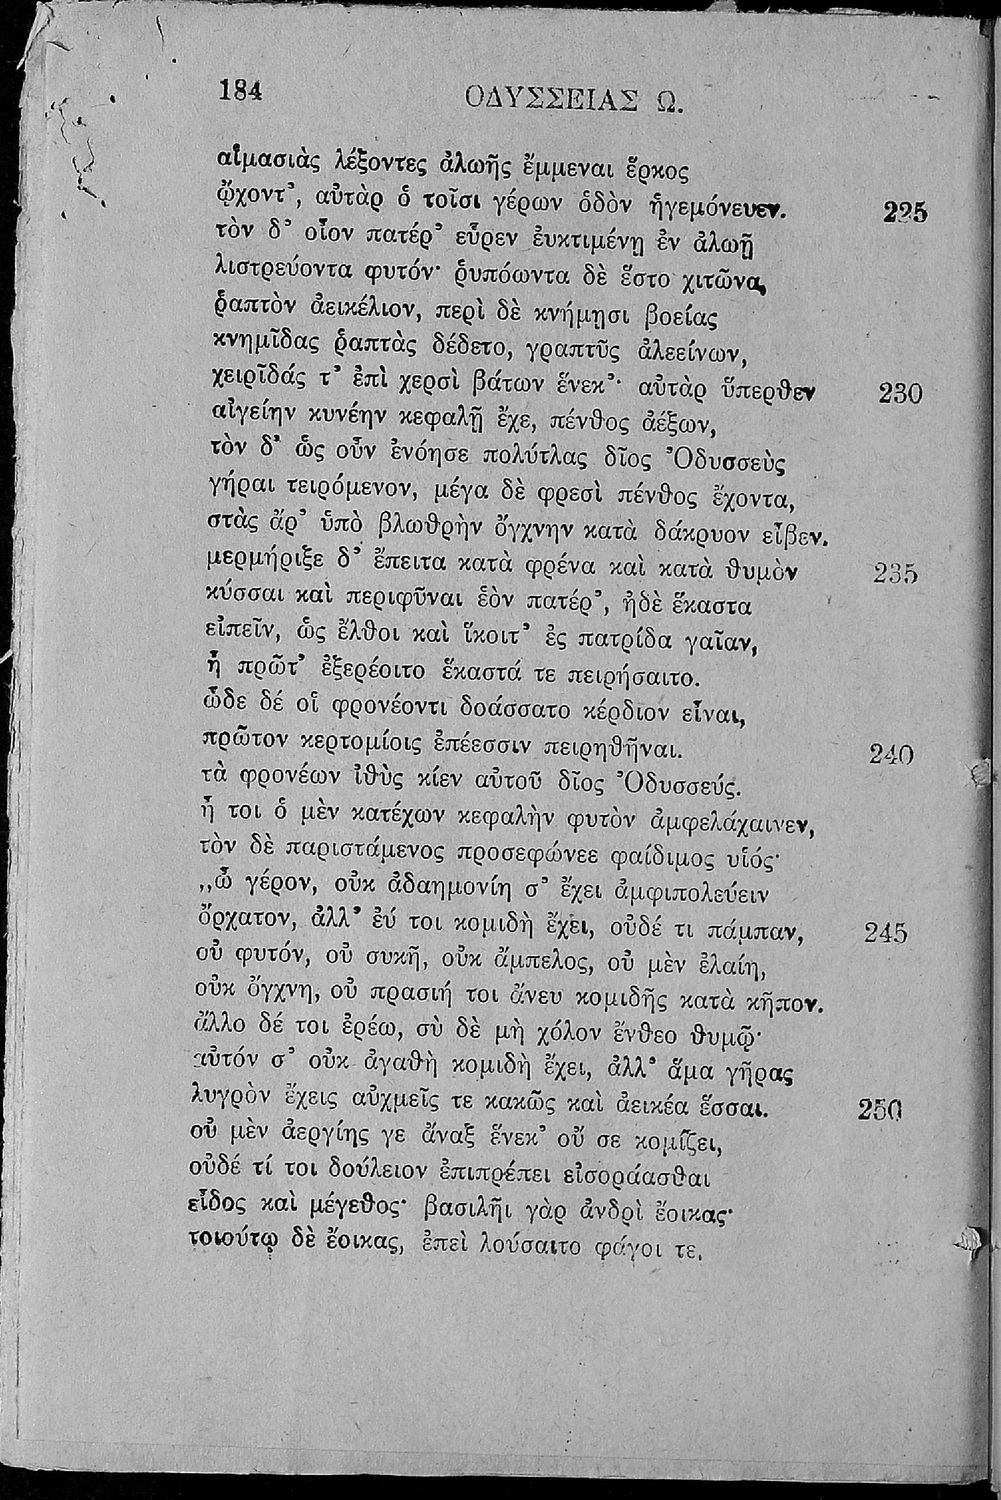 184 ΟΔΥΣΣΕΙΑΣ Ω.
αἱμασιὰς λέξοντες ἀλωῆς ἔμμεναι ἕρκος
ᾤχοντ’, αὐτὰρ ὁ τοῖσι γέρων ὁδὸν ἡγεμόνευεν. 225
τὸν δ’ οἶον πατέρ’ εὗρεν ἐυκτιμένῃ ἐν ἀλωῇ
λιστρεύοντα φυτόν· ῥυπόωντα δὲ ἕστο χιτῶνα,
ῥαπτὸν ἀεικέλιον, περὶ δὲ κνήμῃσι βοείας
κνημῖδας ῥαπτὰς δέδετο, γραπτῦς ἀλεείνων,
χειρῖδάς τ’ ἐπὶ χερσὶ βάτων ἕνεκ’· αὐτὰρ ὕπερθεν 230
αἰγείην κυνέην κεφαλῇ ἔχε, πένθος ἀέξων,
τὸν δ’ ὡς οὖν ἐνόησε πολύτλας δῖος Ὀδυσσεὺς
γήραι τειρόμενον, μέγα δὲ φρεσὶ πένθος ἔχοντα,
στὰς ἄρ’ ὑπὸ βλωθρὴν ὄγχνην κατὰ δάκρυον εἶβεν.
μερμήριξε δ’ ἔπειτα κατὰ φρένα καὶ κατὰ θυμὸν 235
κύσσαι καὶ περιφῦναι ἑὸν πατέρ’, ἠδὲ ἕκαστα
εἰπεῖν, ὡς ἔλθοι καὶ ἵκοιτ’ ἐς πατρίδα γαῖαν,
ἦ πρῶτ’ ἐξερέοιτο ἕκαστά τε πειρήσαιτο.
ὧδε δέ οἱ φρονέοντι δοάσσατο κέρδιον εἶναι,
πρῶτον κερτομίοις ἐπέεσσιν πειρηθῆναι. 240
τὰ φρονέων ἰθὺς κίεν αὐτοῦ δῖος Ὀδυσσεύς.
ἦ τοι ὁ μὲν κατέχων κεφαλὴν φυτὸν ἀμφελάχαινεν,
τὸν δὲ παριστάμενος προσεφώνεε φαίδιμος υἱός·
„ὦ γέρον, οὐκ ἀδαημονίη σ’ ἔχει ἀμφιπολεύειν
ὄρχατον, ἀλλ’ εὖ τοι κομιδὴ ἔχει, οὐδέ τι πάμπαν, 245
οὐ φυτόν, οὐ συκῆ, οὐκ ἄμπελος, οὐ μὲν ἐλαίη,
οὐκ ὄγχνη, οὐ πρασιή τοι ἄνευ κομιδῆς κατὰ κῆπον.
ἄλλο δέ τοι ἐρέω, σὺ δὲ μὴ χόλον ἔνθεο θυμῷ·
αὐτόν σ’ οὐκ ἀγαθὴ κομιδὴ ἔχει, ἀλλ’ ἅμα γῆρας
λυγρὸν ἔχεις αὐχμεῖς τε κακῶς καὶ ἀεικέα ἕσσαι. 250
οὐ μὲν ἀεργίης γε ἄναξ ἕνεκ’ οὔ σε κομίζει,
οὐδέ τί τοι δούλειον ἐπιπρέπει εἰσοράασθαι
εἶδος καὶ μέγεθος· βασιλῆι γὰρ ἀνδρὶ ἔοικας·
τοιούτῳ δὲ ἔοικας, ἐπεὶ λούσαιτο φάγοι τε,